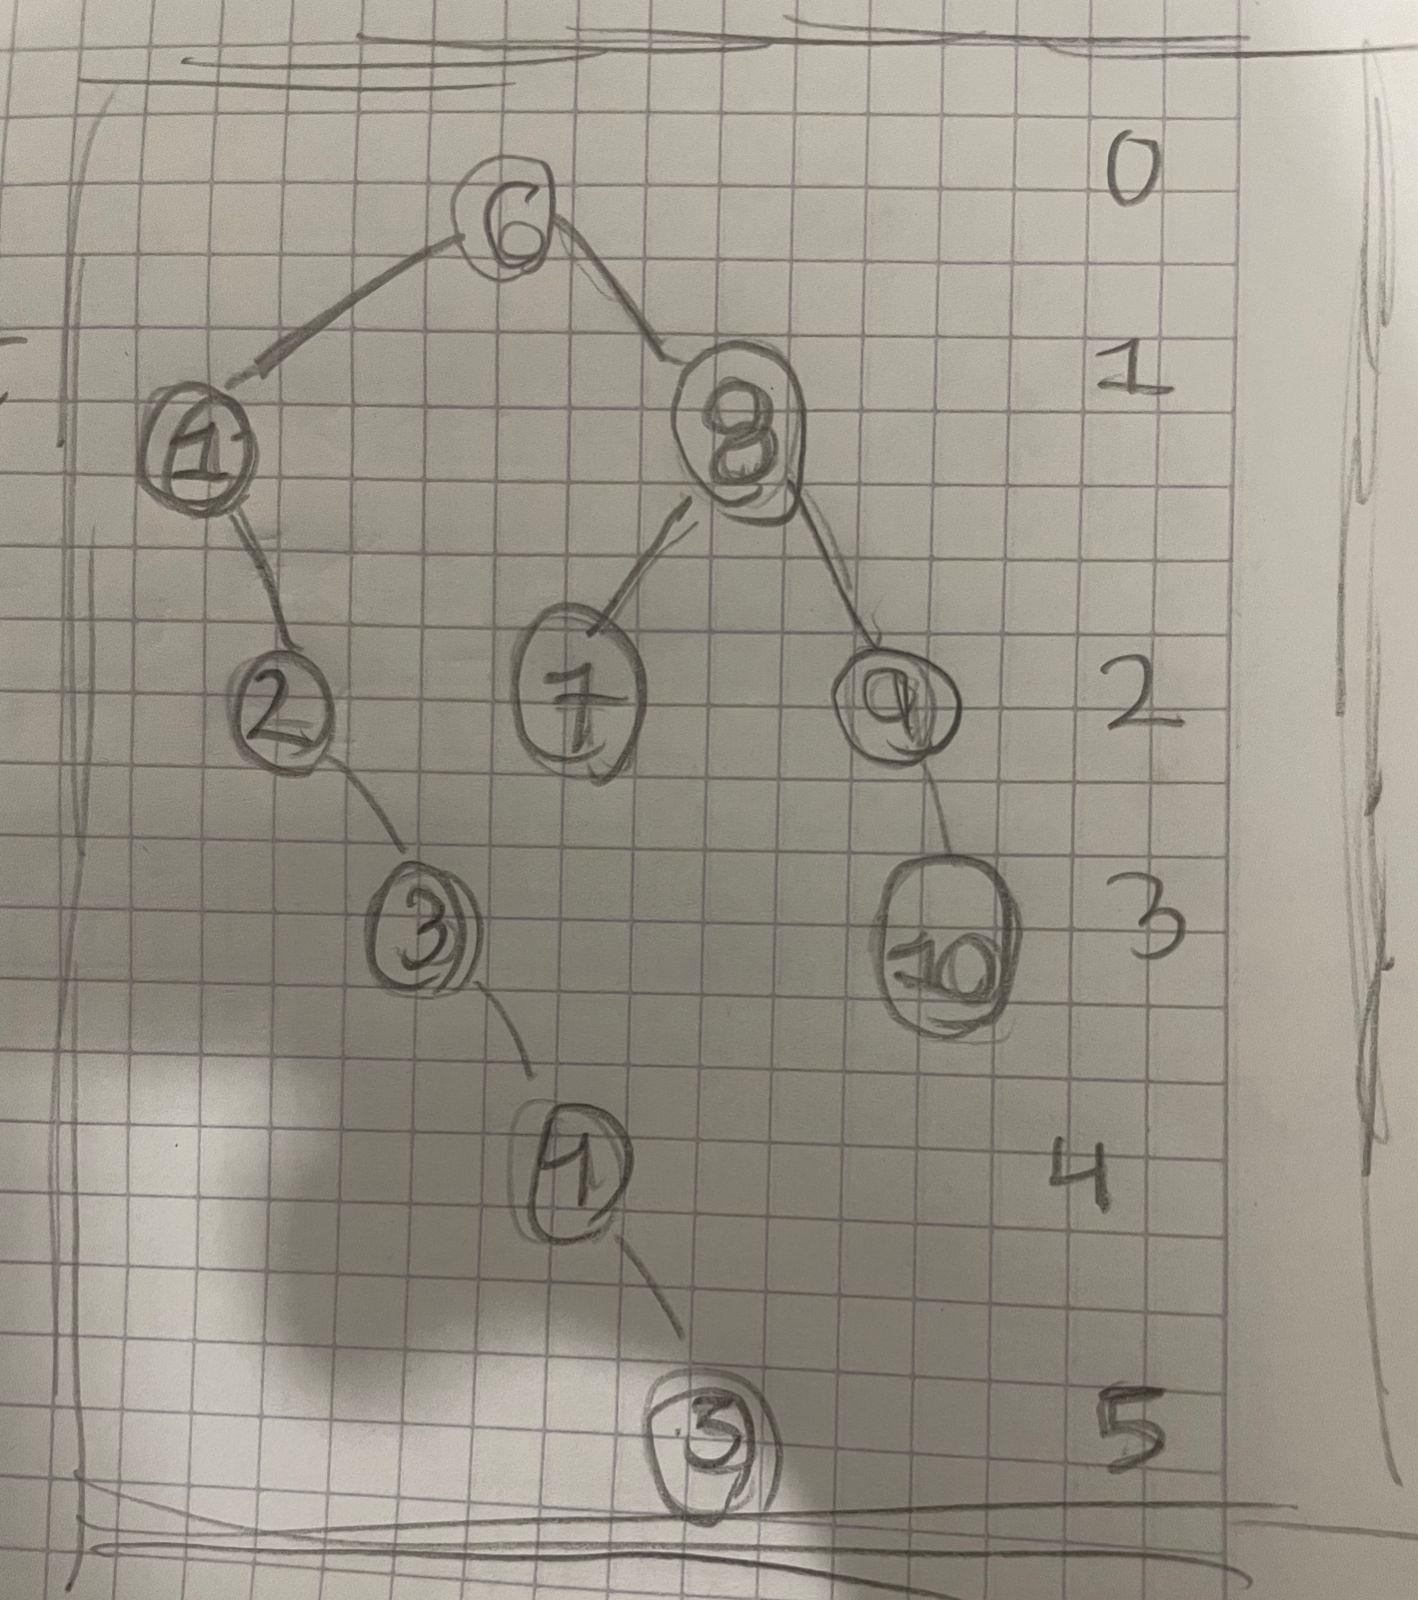 6 0
1 8 1
2 7 9 2
3 10 3
4 4
5 5